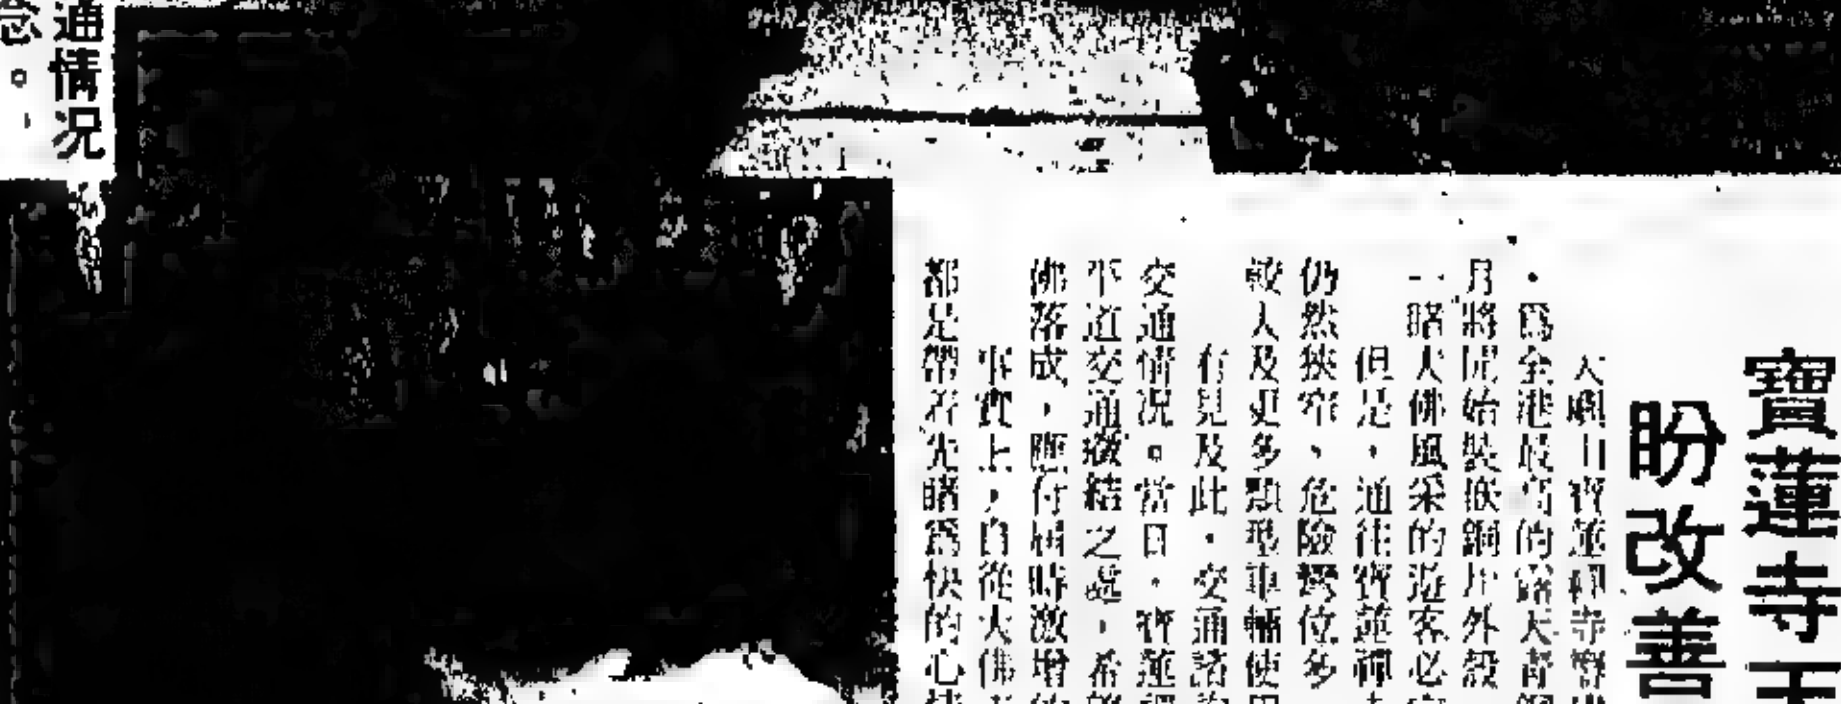 寶蓮寺天
盼改善
大嶼山寶蓮禪寺
，爲全港最高的露天青銅
月將開始裝嵌銅片外殼
一睹大佛風采的遊客必
但是，通往寶蓮禪
仍然狹窄、危險彎位多
較大及更多類型車輛使用
有見及此，交通諮詢
交通情况。當日，寶蓮禪
平道交通癥結之處，希望
佛落成，應付屆時激增的
事實上，自從大佛
都是帶着先睹爲快的心情
通情况
念。